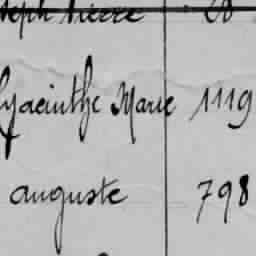 seph Pierre 20
Hyacinthe Marie 1119
auguste 798